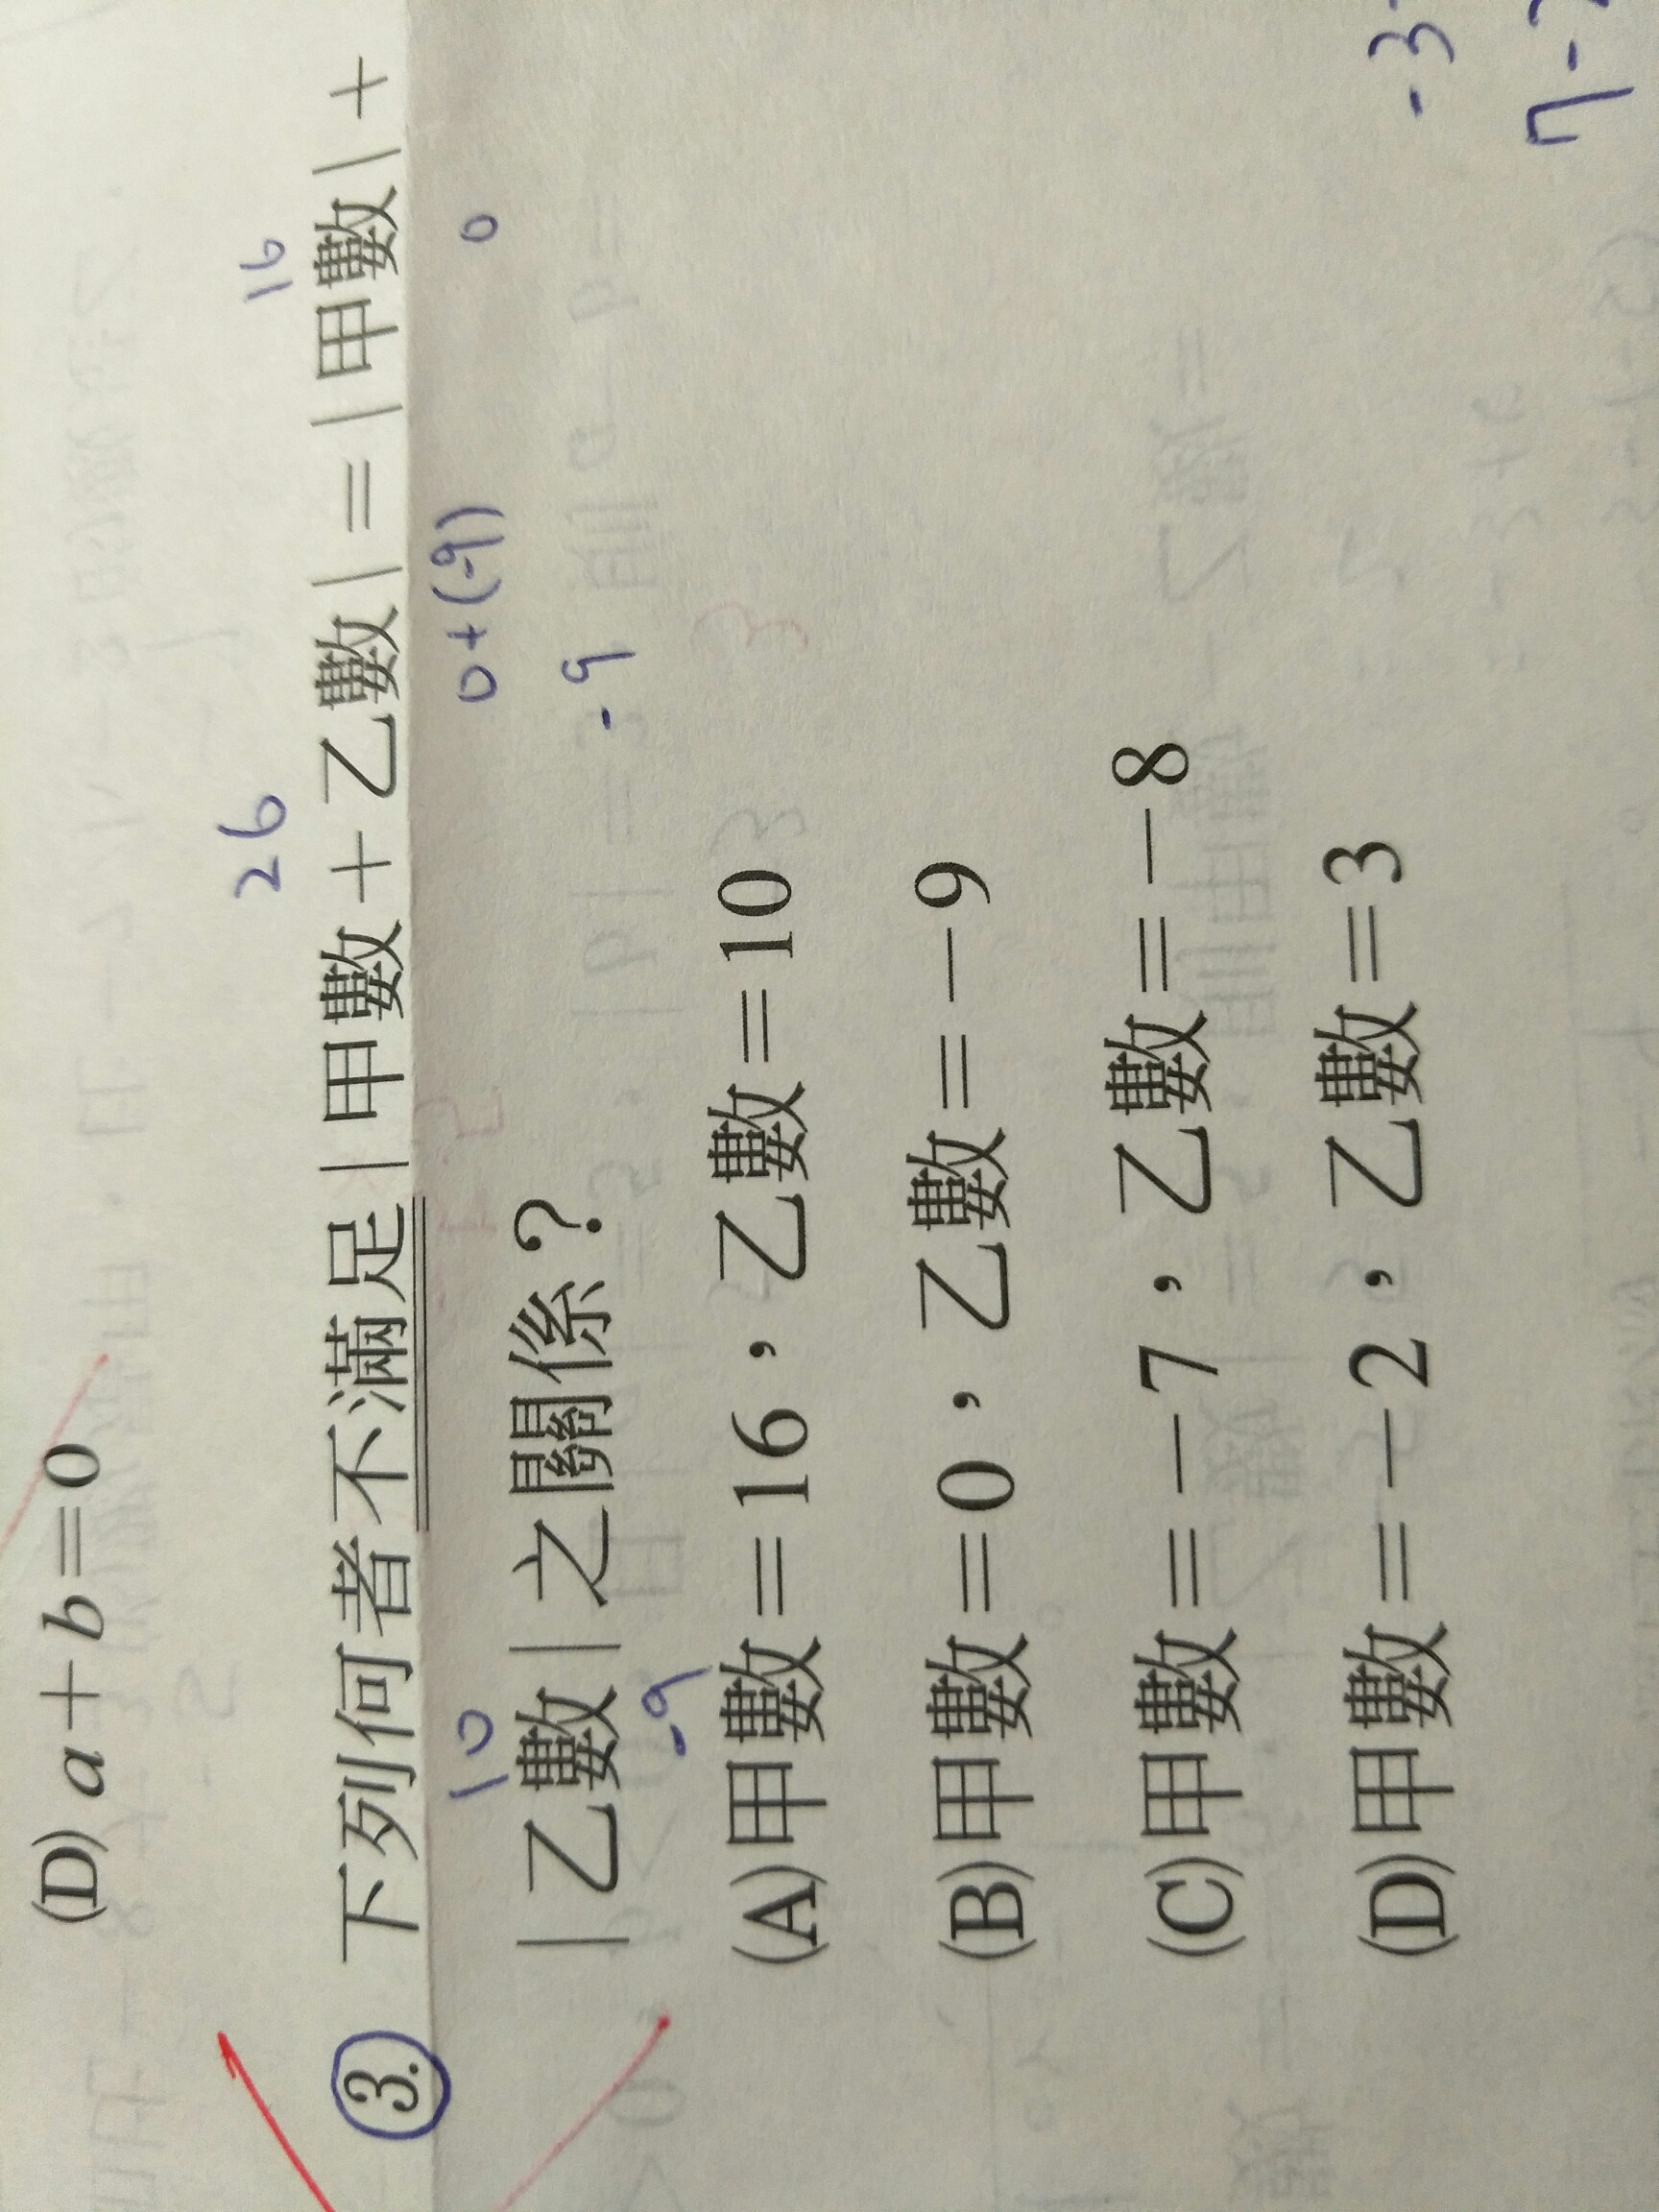 (D) a+b=0
26
16
3. 下列何者不滿足|甲數+乙數|=|甲數|+
10
0+(-9)
0
|乙數|之關係?
-9
-9
(A)甲數=16,乙數=10
(B)甲數=0,乙數=-9
(C)甲數=-7,乙數=-8
(D)甲數=-2,乙數=3
-3